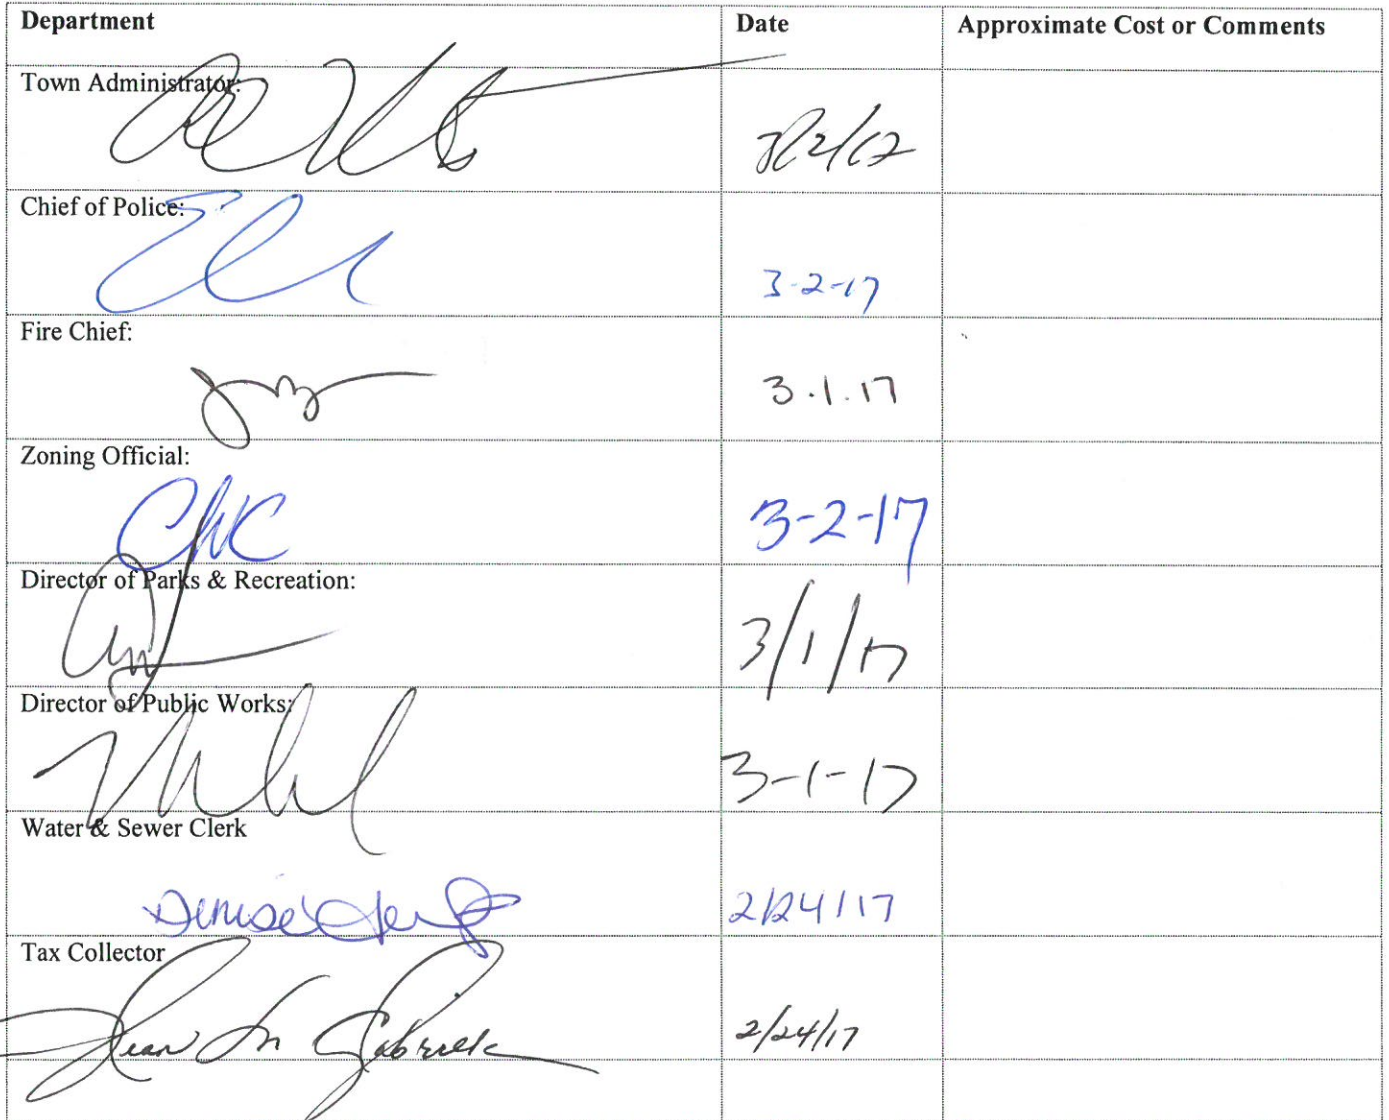 Department Date Approximate Cost or Comments
Town Administrator:
3/2/17
Chief of Police:
3-2-17
Fire Chief:
3.1.17
Zoning Official:
CWC 3-2-17
Director of Parks & Recreation:
3/1/17
Director of Public Works:
3-1-17
Water & Sewer Clerk
Denise 2/24/17
Tax Collector
Jean M Gabriele 2/24/17